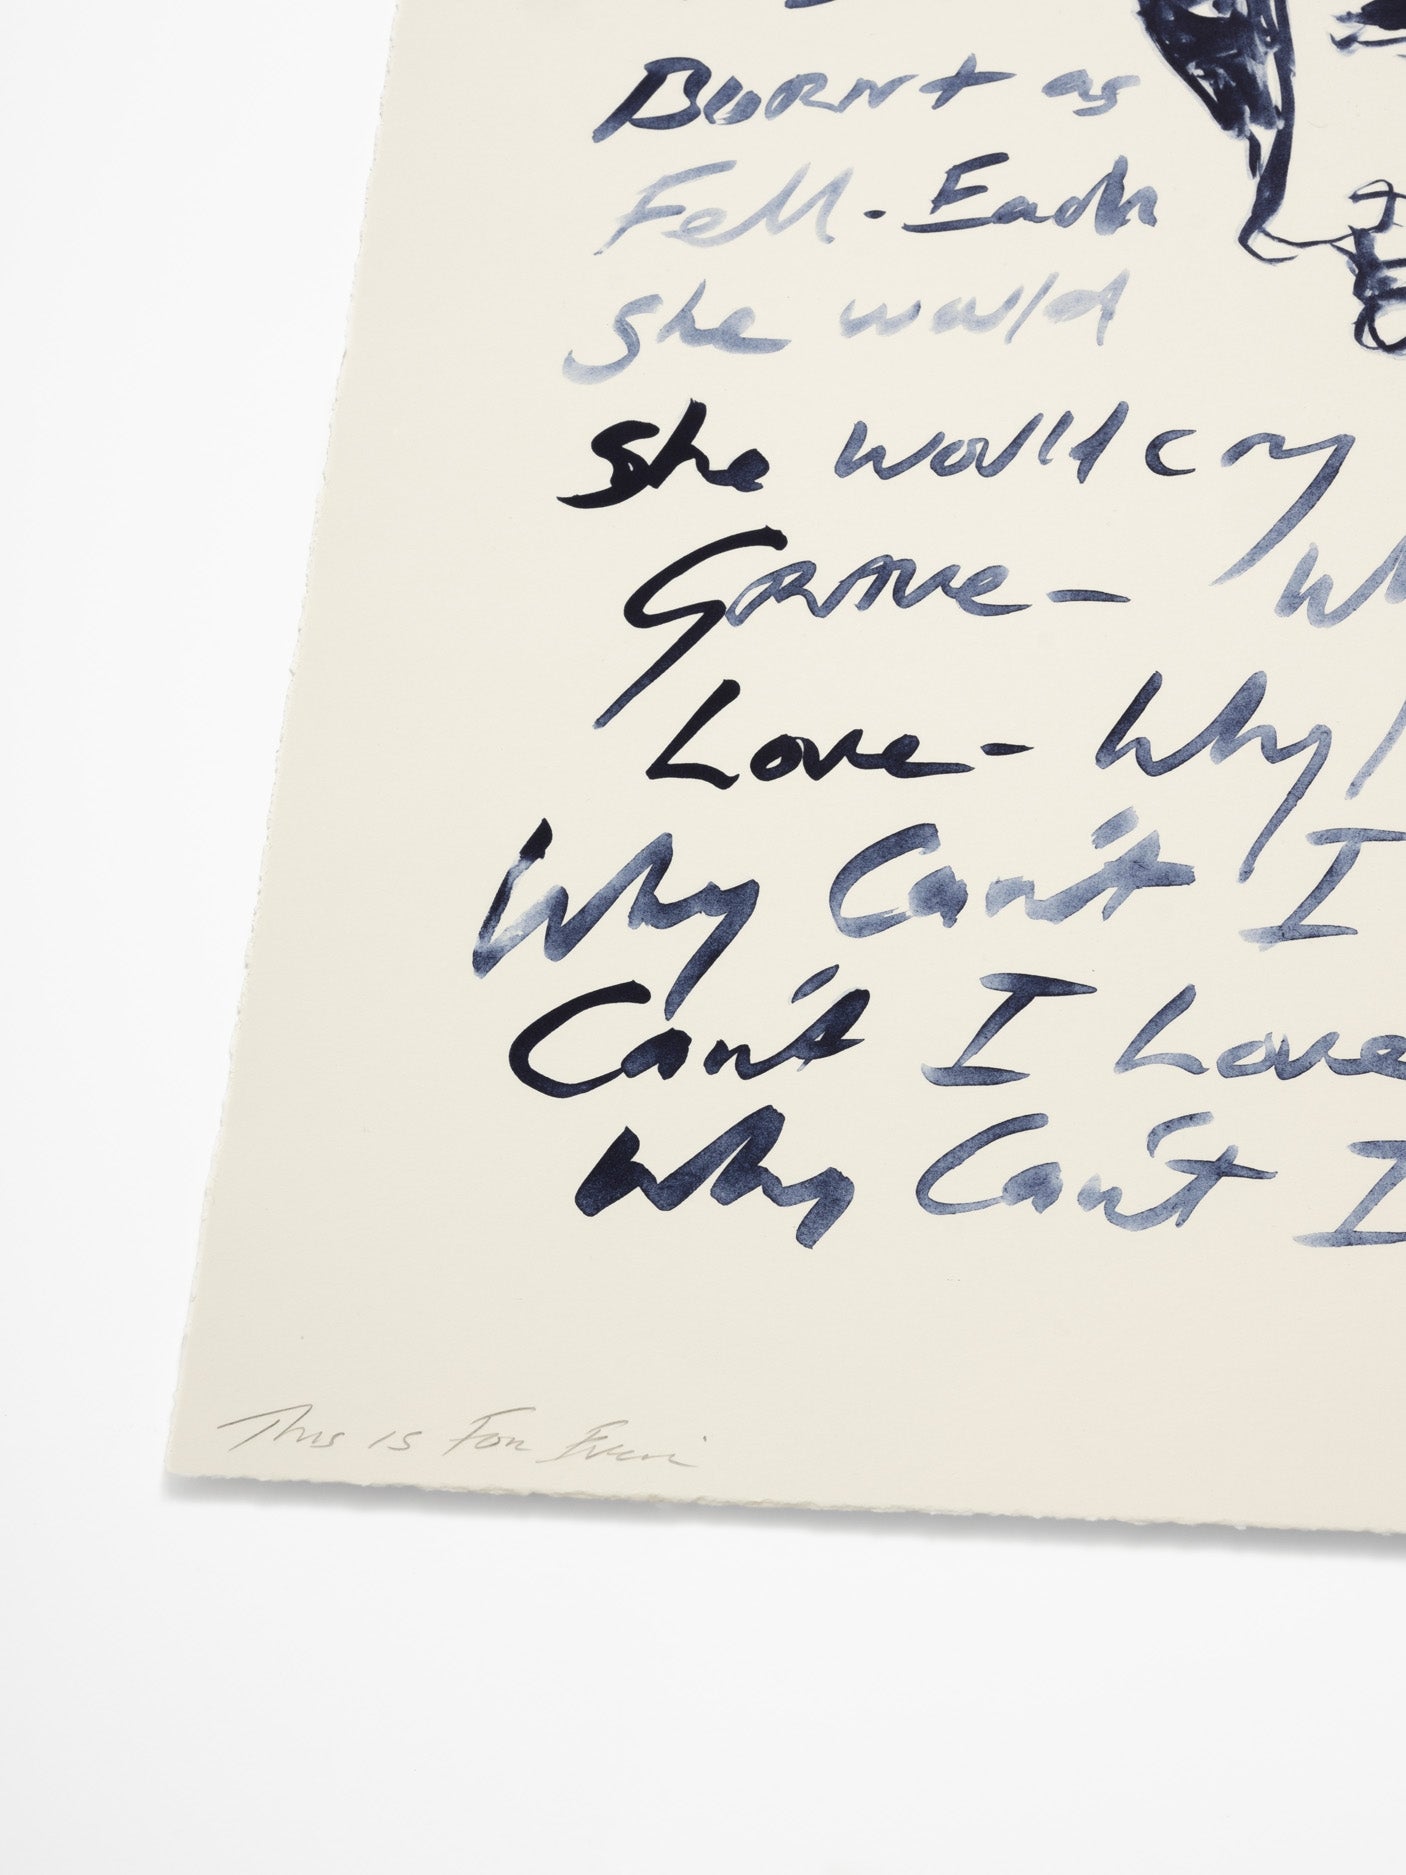 Burnt as
Fell. Each
She would
She would cry
Grave —
Love — Why
Why Can't I
Can't I Love
Why Can't I
This is For